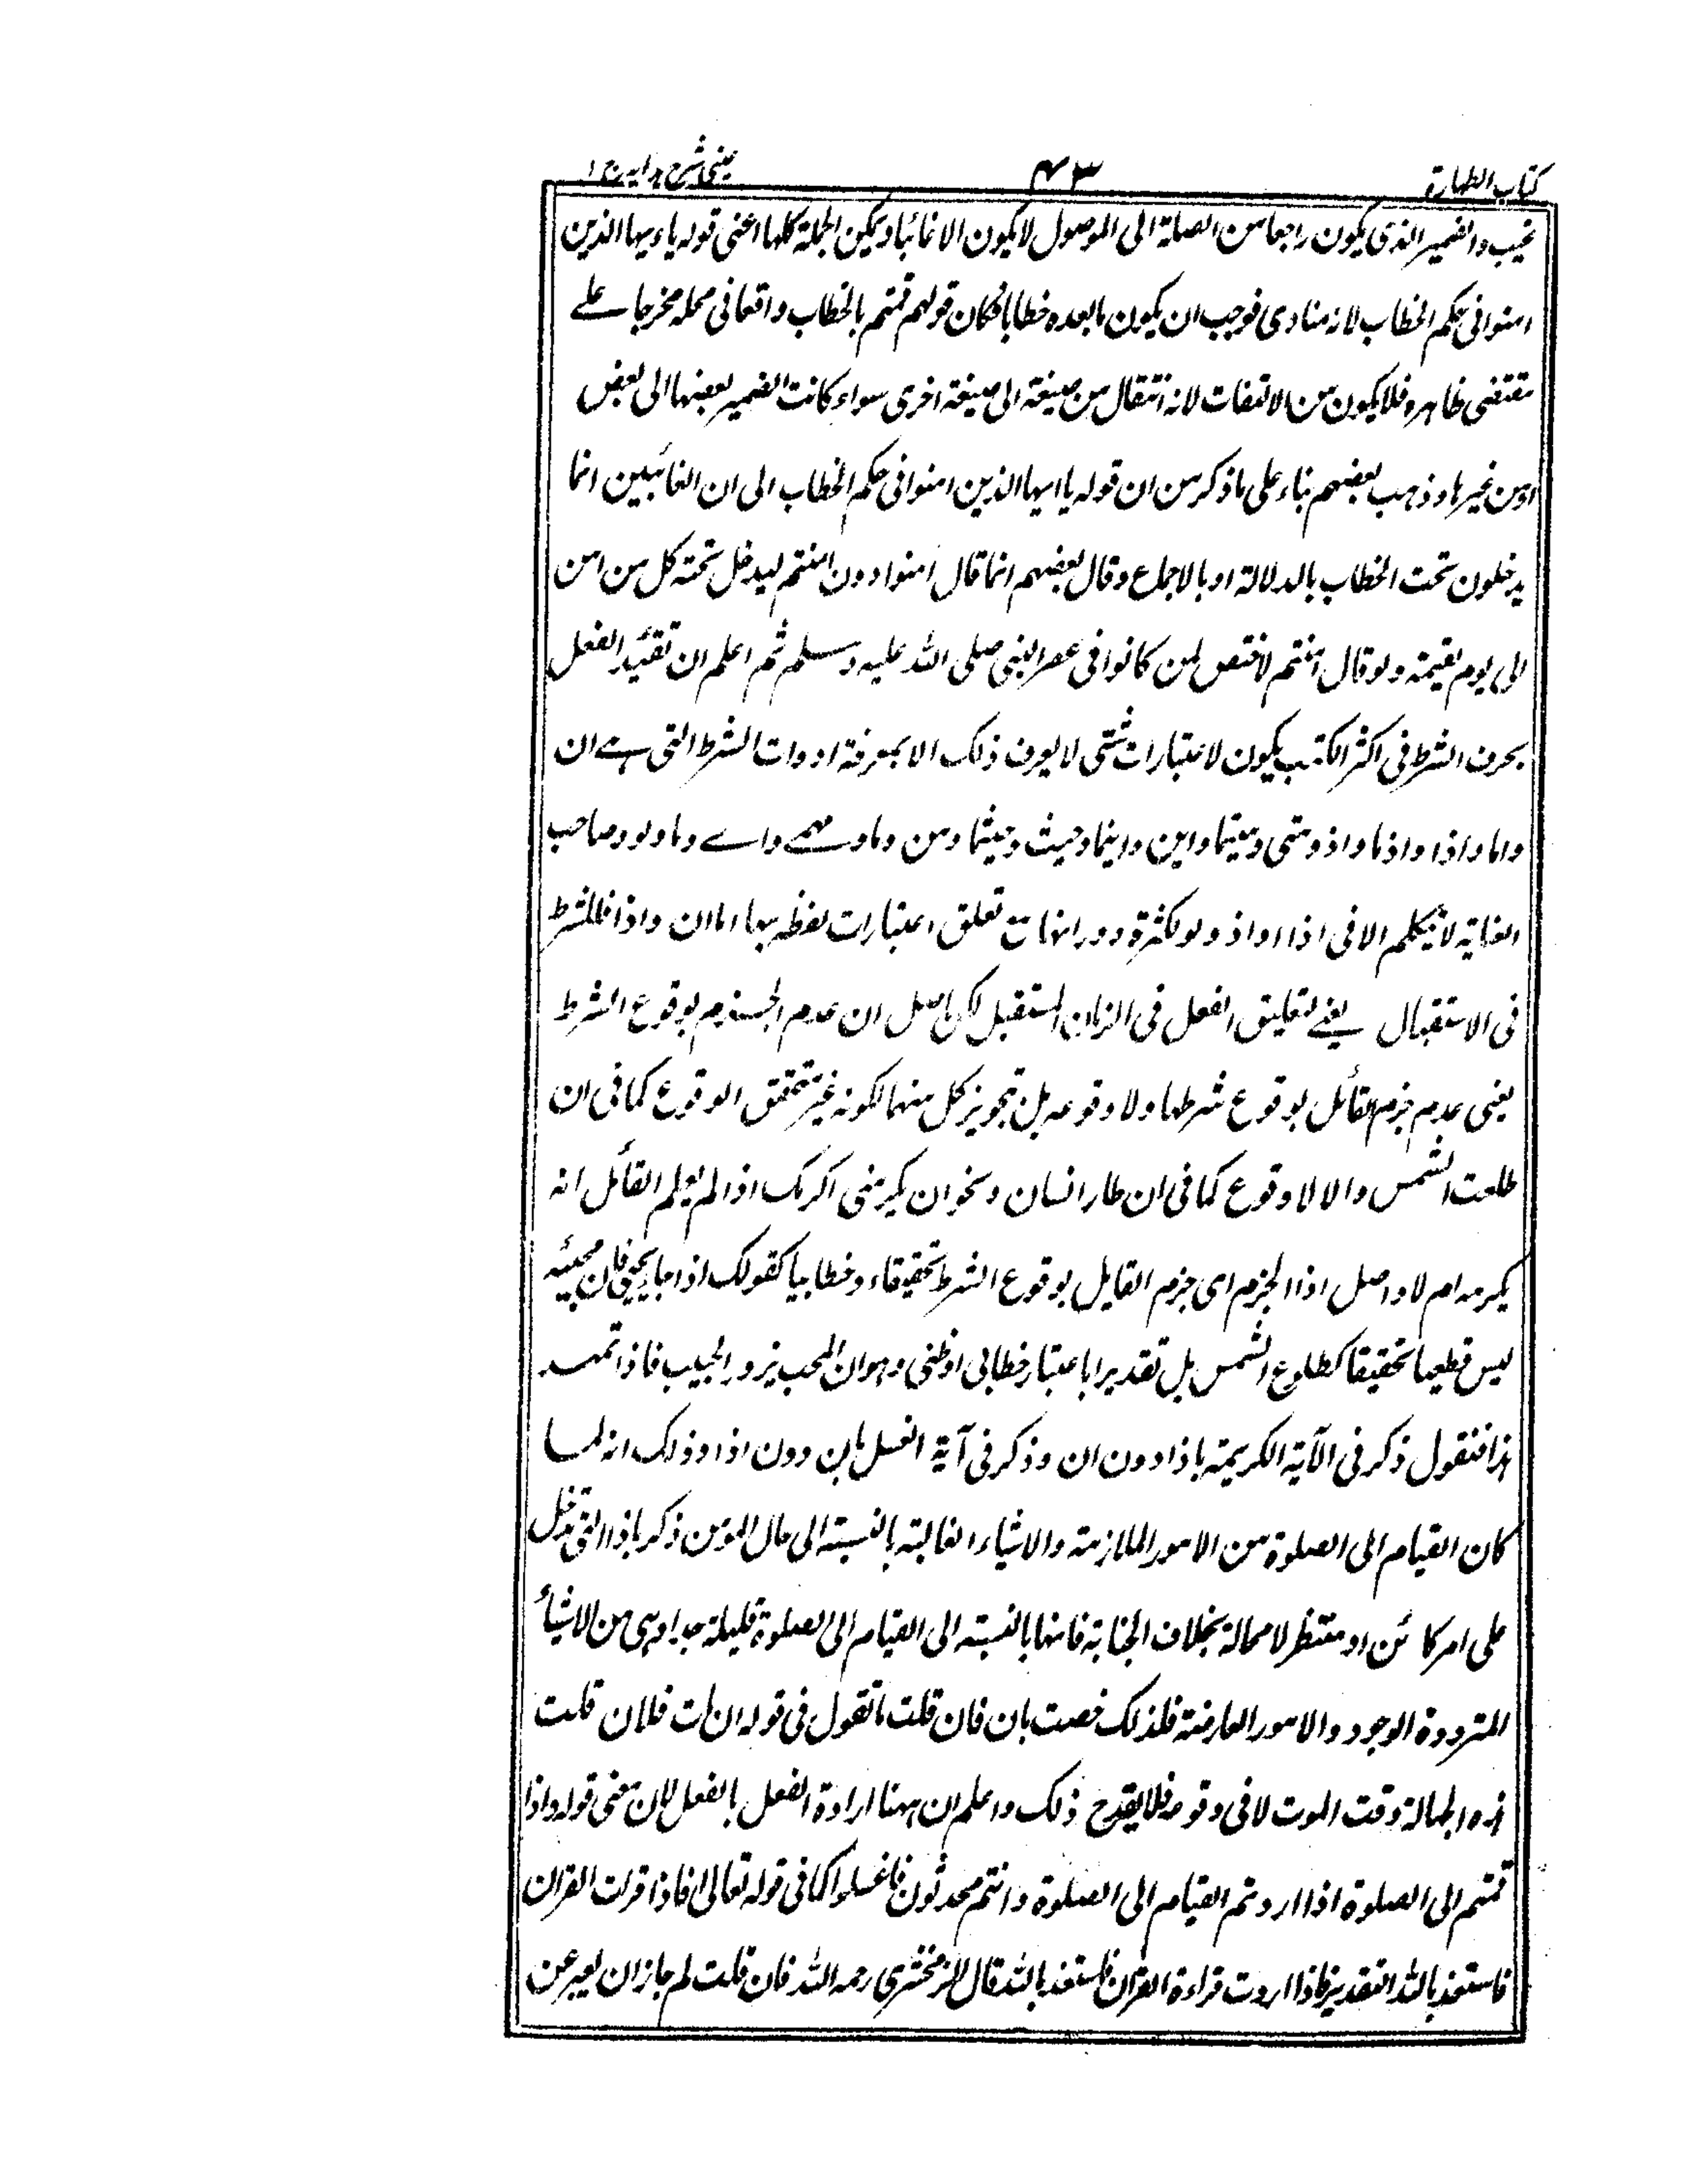 كتاب الطهارة ٤٣ عينی شرح هدايه ج ١
غيب والضمير الذی يكون راجعا من الصلة الی الموصول لا يكون الا غائبا ويكن الجملة كلها اعنی قوله ياءيها الذين
امنوا فی حكم الخطاب لانه منادی فوجب ان يكون ما بعده خطابا فكان قولهم قمتم بالخطاب واقعا فی محله مخرجا علے
مقتضی ظاهره فلا يكون من الالتفات لانه انتقال من صيغة الی صيغة اخری سواء كانت الضمير بعضها الی بعض
اومن غيرها وذهب بعضهم بناء علی ما ذكر من ان قوله يا ايها الذين امنوا فی حكم الخطاب الی ان الغائبين انما
يدخلون تحت الخطاب بالدلالة او بالاجماع وقال بعضهم انما قال امنوا دون امنتم ليدخل تحته كل من امن
الی يوم القيمة ولو قال امنتم لاختص لمن كانوا فی عصر النبی صلی الله عليه وسلم ثم اعلم ان تقئيد الفعل
بحرف الشرط فی اكثر الكتب يكون لاعتبارات شتی لا يعرف ذلك الا بمعرفة ادوات الشرط التی هے ان
واما واذا واذما واذ ومتی ومتيما واين واينما وحيث وحيثما ومن وما ومهمے واے وما ولو وصاحب
الغاية لا يتكلم الا فی اذا واذ ولو لكثرة دورانها مع تعلق اعتبارات لفظه بها اما ان واذا فللشرط
فی الاستقبال يعنے لتعليق الفعل فی الزمان المستقبل لكن اصل ان عدم الجزم بوقوع الشرط
يعنی عدم جزم القائل بوقوع شرطها ولا وقوعه بل تجويز كل منهما لكونه غير متحقق الوقوع كما فی ان
طلعت الشمس والا لا وقوع كما فی ان طار انسان ونحو ان يكرمنی اكرمك اذا لم يعلم القائل انه
يكرمه ام لا واصل اذا الجزم ای جزم القايل بوقوع الشرط تحقيقاء وخطابيا كقولك اذا جاء يحيی فان مجيئه
ليس قطعيا تحقيقا كطلوع الشمس بل تقديرا باعتبار خطابی او ظنی وهوان المحب يزور الحبيب فاذا تمهد
هذا فنقول ذكر فی الآية الكريمة باذا دون ان وذكر فی آية الغسل بان دون اذا وذلك انه لما
كان القيام الی الصلوة من الامور الملازمة والاشياء الغالبة بالنسبة الی حال المؤمن ذكر باذا التی تدخل
علی امر كائن او منتظر لا محالة بخلاف الجنابة فانها بالنسبة الی القيام الی الصلوة قليلة جدا وهی من الاشياء
المترددة الوجود والامور العارضة فلذلك خصت بان فان قلت ما تقول فی قوله ان مات فلان قلت
هذه الجهالة وقت الموت لا فی وقوعه فلا يقدح ذلك واعلم ان ههنا ارادة الفعل بالفعل لان معنی قوله واذا
قمتم الی الصلوة اذا اردتم القيام الی الصلوة وانتم محدثون فاغسلوا كما فی قوله تعالی فاذا قرات القران
فاستعذ بالله التقدير فاذا اردت قراءة القرآن فاستعذ بالله قال الزمخشری رحمه الله فان قلت لم جاز ان يعبر عن